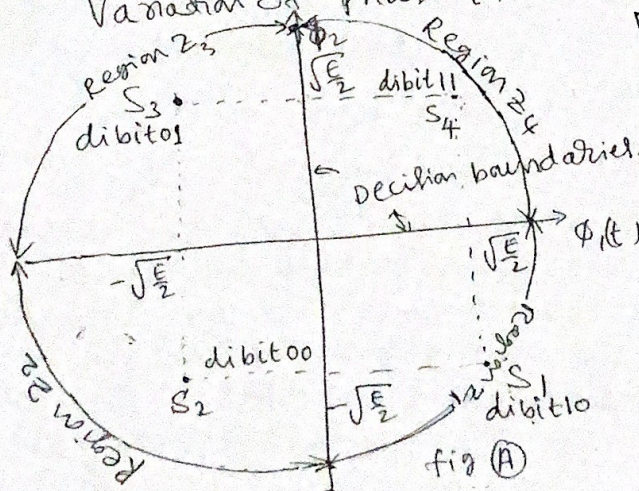 Variation of Phase
Region Z3
ϕ2
Region Z4
√E/2
dibit 11
S3
S4
dibit 01
Decision boundaries
ϕ1(t)
-√E/2
√E/2
Region Z1
dibit 00
S2
S1
-√E/2
dibit 10
Region Z2
fig (A)